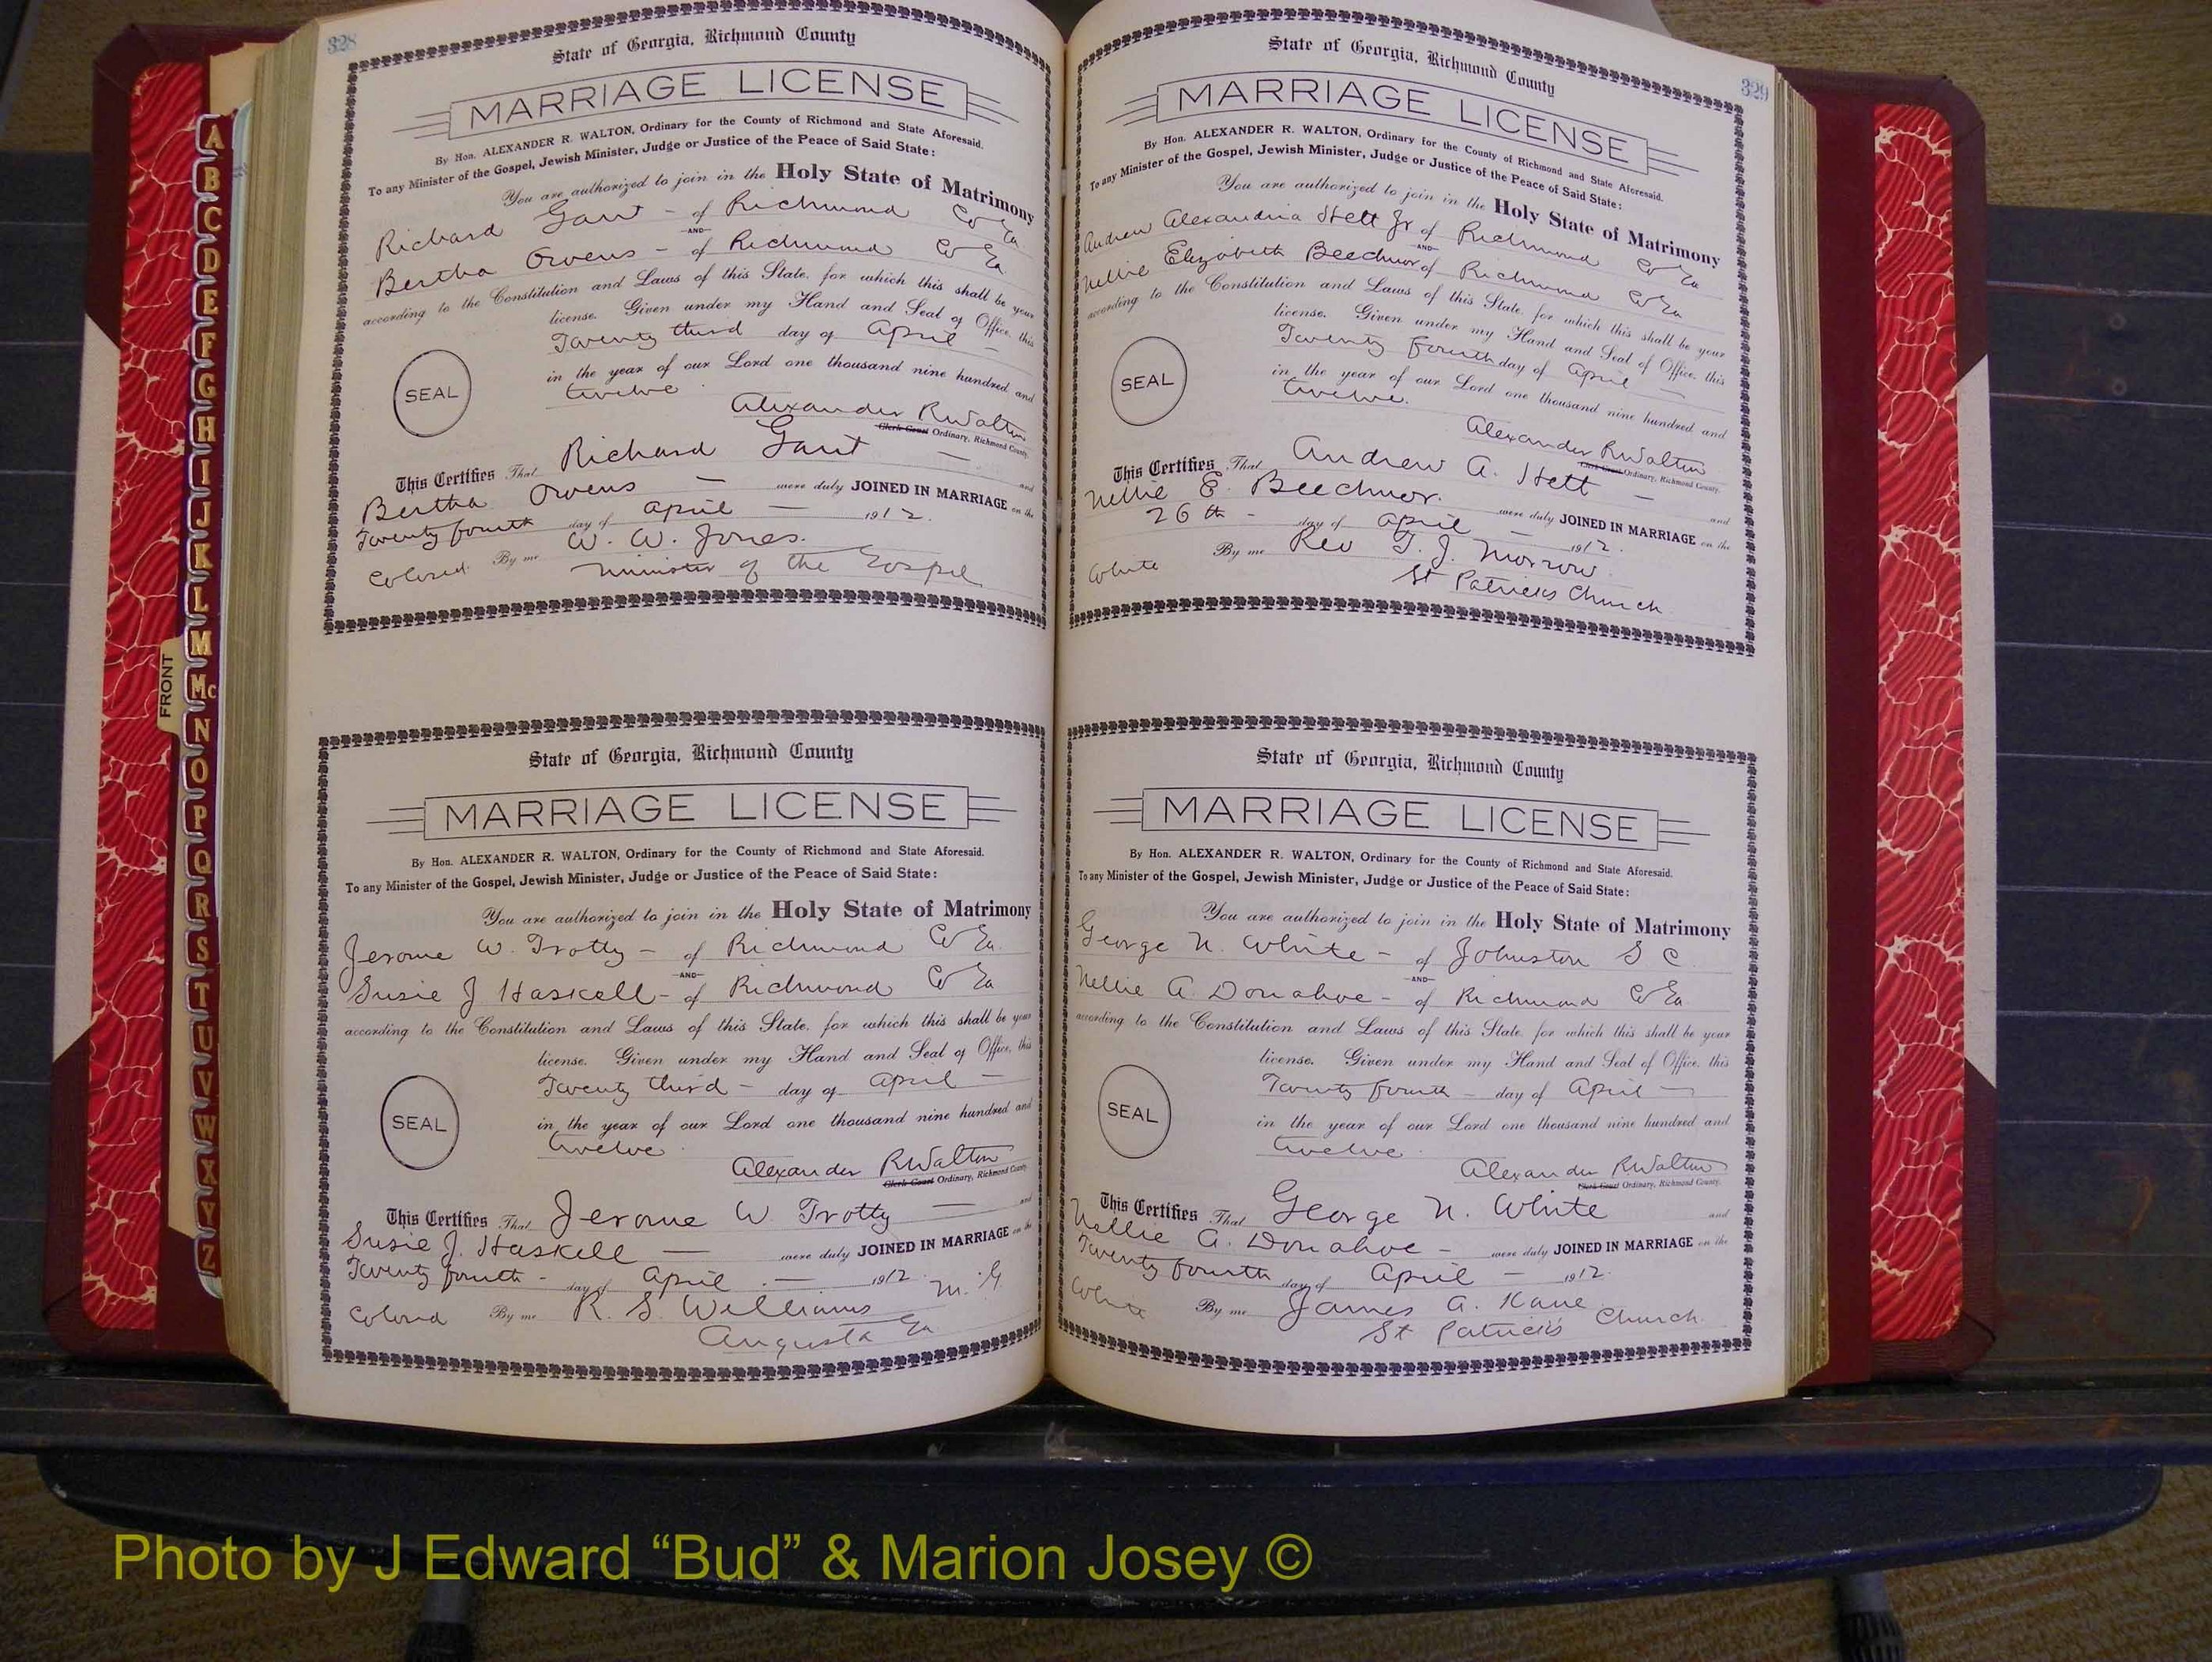 328
State of Georgia, Richmond County
MARRIAGE LICENSE
By Hon. ALEXANDER R. WALTON, Ordinary for the County of Richmond and State Aforesaid.
To any Minister of the Gospel, Jewish Minister, Judge or Justice of the Peace of Said State:
You are authorized to join in the Holy State of Matrimony
Richard Gant - of Richmond Co Ga
AND
Bertha Owens - of Richmond Co Ga
according to the Constitution and Laws of this State, for which this shall be your
license. Given under my Hand and Seal of Office, this
Twenty third day of April -
in the year of our Lord one thousand nine hundred and
SEAL
twelve
Alexander R Walton
Clerk Court Ordinary, Richmond County.
This Certifies That Richard Gant - and
Bertha Owens - were duly JOINED IN MARRIAGE on the
Twenty fourth day of April - 1912.
Colored. By me W. W. Jones.
Minister of the Gospel
State of Georgia, Richmond County
MARRIAGE LICENSE
By Hon. ALEXANDER R. WALTON, Ordinary for the County of Richmond and State Aforesaid.
To any Minister of the Gospel, Jewish Minister, Judge or Justice of the Peace of Said State:
You are authorized to join in the Holy State of Matrimony
Jerome W. Trotty - of Richmond Co Ga.
AND
Susie J Haskell - of Richmond Co Ga
according to the Constitution and Laws of this State, for which this shall be your
license. Given under my Hand and Seal of Office, this
Twenty third - day of April -
in the year of our Lord one thousand nine hundred and
SEAL
twelve
Alexander R Walton
Clerk Court Ordinary, Richmond County.
This Certifies That Jerome W. Trotty - and
Susie J. Haskell - were duly JOINED IN MARRIAGE on the
Twenty fourth - day of April - 1912.
Colored By me R. S. Williams M. G.
Augusta Ga
329
State of Georgia, Richmond County
MARRIAGE LICENSE
By Hon. ALEXANDER R. WALTON, Ordinary for the County of Richmond and State Aforesaid.
To any Minister of the Gospel, Jewish Minister, Judge or Justice of the Peace of Said State:
You are authorized to join in the Holy State of Matrimony
Andrew Alexandria Hett Jr of Richmond Co Ga
AND
Nellie Elizabeth of Richmond Co Ga
according to the Constitution and Laws of this State, for which this shall be your
license. Given under my Hand and Seal of Office, this
Twenty fourth day of April -
in the year of our Lord one thousand nine hundred and
SEAL
twelve.
Alexander R Walton
Clerk Court Ordinary, Richmond County.
This Certifies That Andrew A. Hett - and
Nellie E. were duly JOINED IN MARRIAGE on the
26th - day of April - 1912.
White By me Rev T. J. Morrow.
St Patricks Church.
State of Georgia, Richmond County
MARRIAGE LICENSE
By Hon. ALEXANDER R. WALTON, Ordinary for the County of Richmond and State Aforesaid.
To any Minister of the Gospel, Jewish Minister, Judge or Justice of the Peace of Said State:
You are authorized to join in the Holy State of Matrimony
George N. White - of Johnston S C.
AND
Nellie A. Donahoe - of Richmond Co Ga.
according to the Constitution and Laws of this State, for which this shall be your
license. Given under my Hand and Seal of Office, this
Twenty fourth - day of April -
in the year of our Lord one thousand nine hundred and
SEAL
twelve.
Alexander R Walton
Clerk Court Ordinary, Richmond County.
This Certifies That George N. White and
Nellie A. Donahoe - were duly JOINED IN MARRIAGE on the
Twenty fourth day of April - 1912.
White By me James A. Kane
St Patrick's Church.
FRONT
A
B
C
D
E
F
G
H
I
J
K
L
M
Mc
N
O
P
Q
R
S
T
U
V
W
X
Y
Z
Photo by J Edward “Bud” & Marion Josey ©